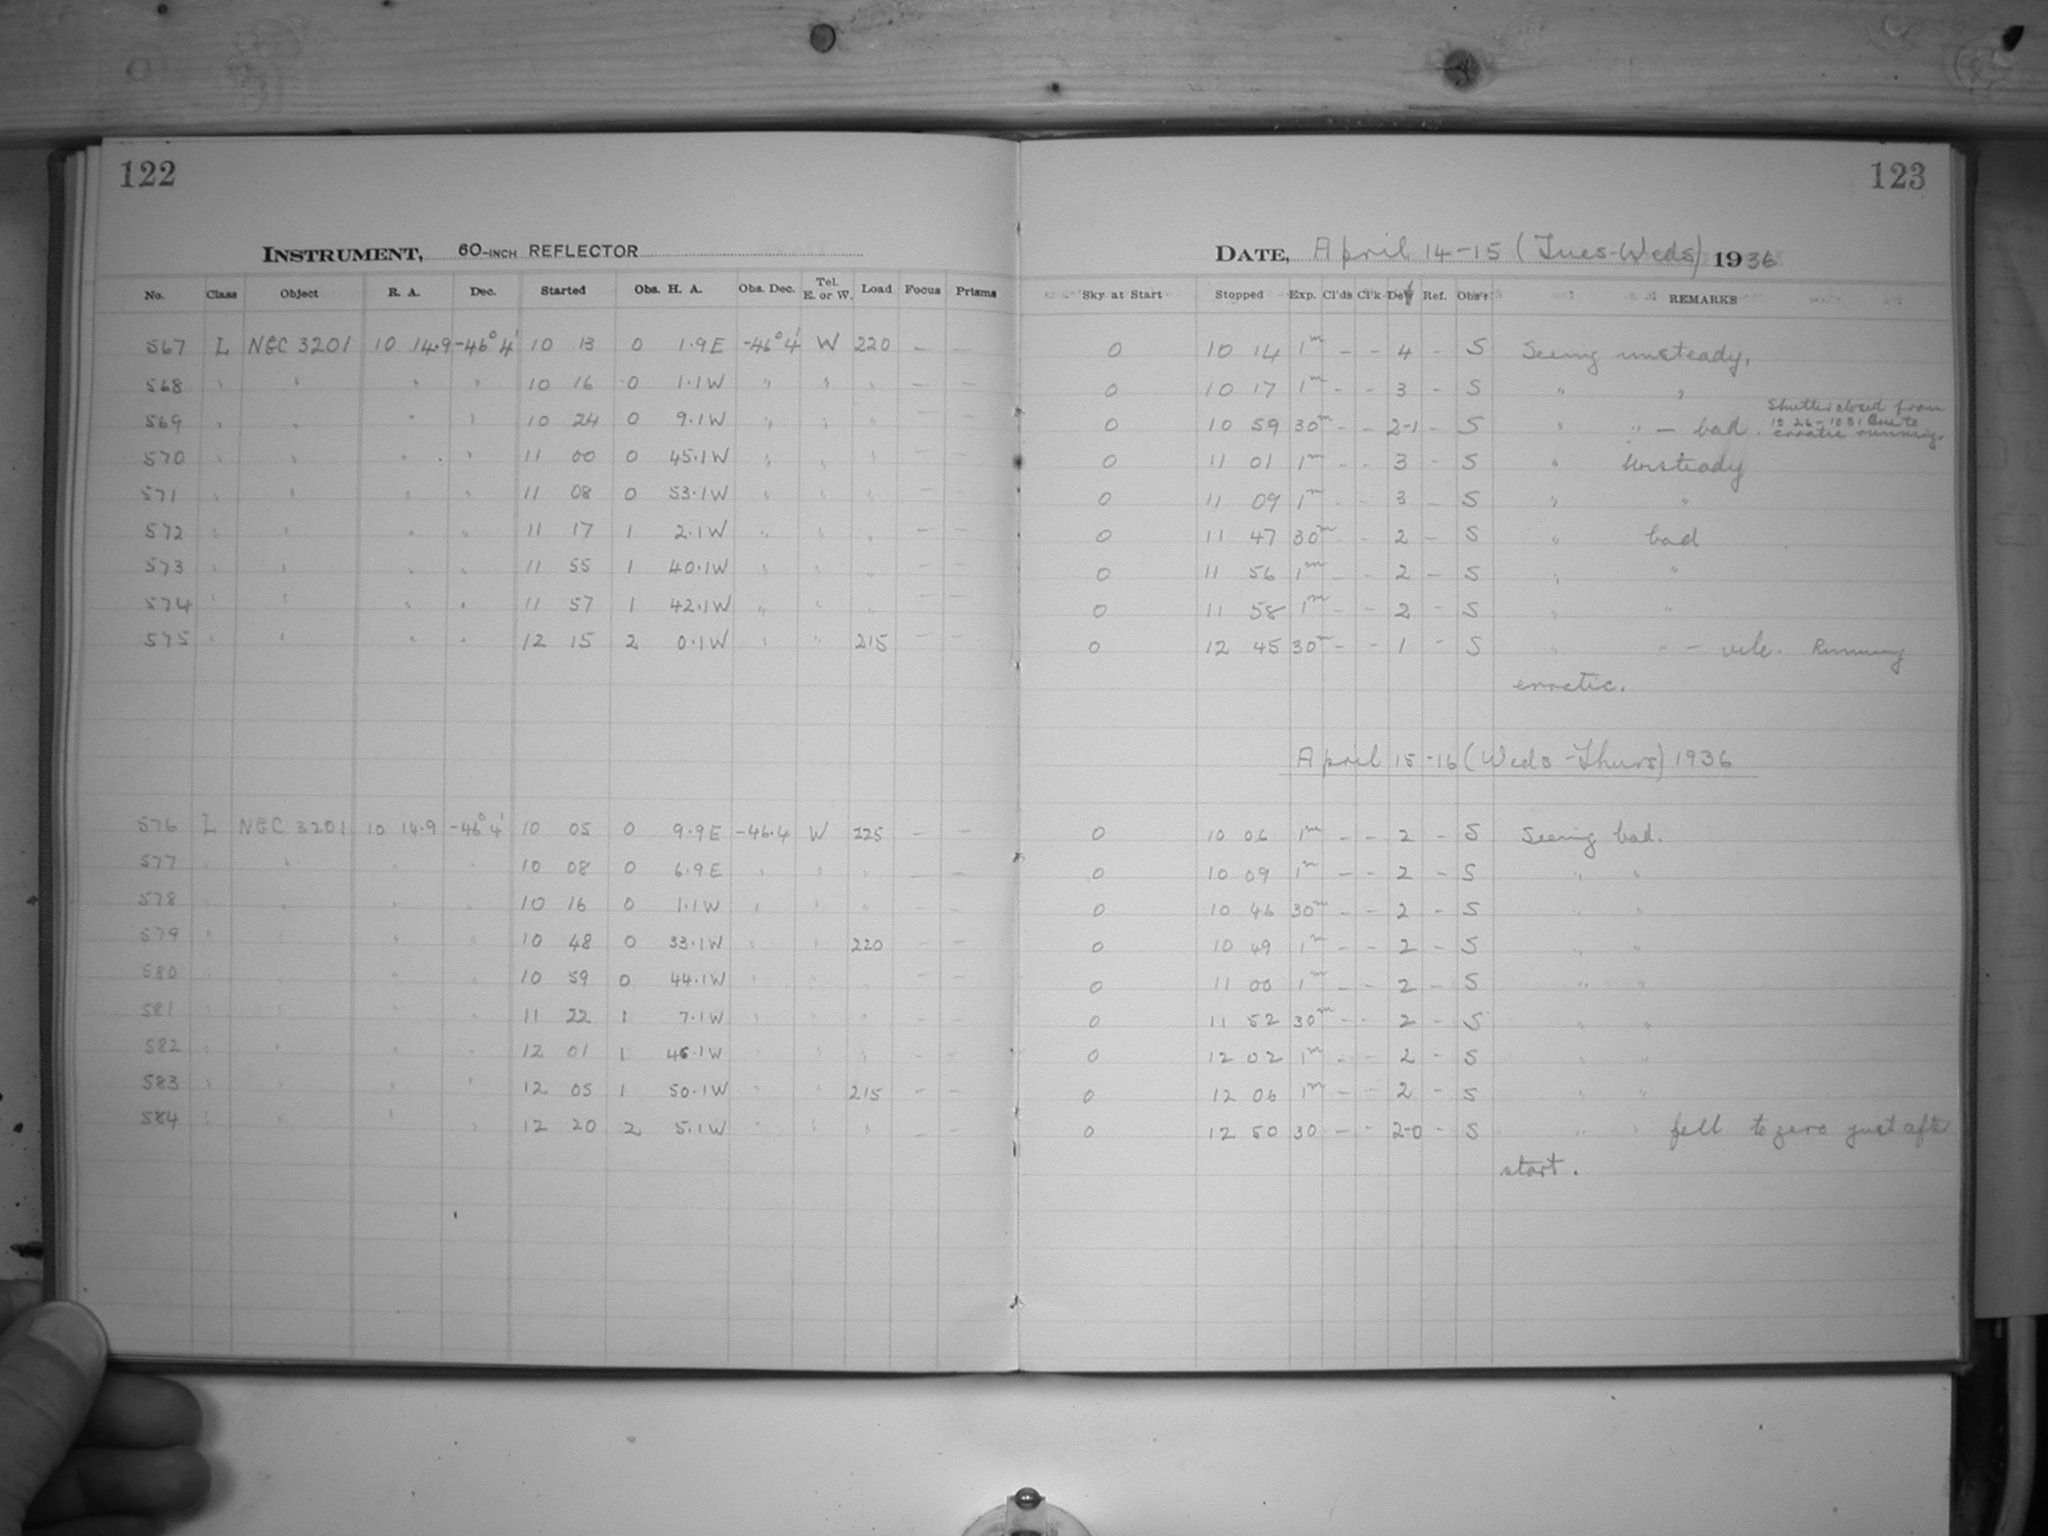 122
INSTRUMENT, 60-INCH REFLECTOR
No. Class Object R. A. Dec. Started Obs. H. A. Obs. Dec. Tel. E. or W. Load Focus Prisms
567 L NGC 3201 10 14.9 -46° 4' 10 13 0 1.9 E -46° 4' W 220 — —
568 " " " " 10 16 0 1.1 W " " " — —
569 " " " " 10 24 0 9.1 W " " "
570 " " " " 11 00 0 45.1 W " " " — —
571 " " " " 11 08 0 53.1 W " " " — —
572 " " " " 11 17 1 2.1 W " " " — —
573 " " " " 11 55 1 40.1 W " " " — —
574 " " " " 11 57 1 42.1 W " " " — —
575 " " " " 12 15 2 0.1 W " " 215 — —
576 L NGC 3201 10 14.9 -46° 4' 10 05 0 9.9 E -46.4 W 225 — —
577 " " " " 10 08 0 6.9 E " " " — —
578 " " " " 10 16 0 1.1 W " " " — —
579 " " " " 10 48 0 33.1 W " " 220 — —
580 " " " " 10 59 0 44.1 W " " " — —
581 " " " " 11 22 1 7.1 W " " " — —
582 " " " " 12 01 1 46.1 W " " " — —
583 " " " " 12 05 1 50.1 W " " 215 — —
584 " " " " 12 20 2 5.1 W " " " — —
123
DATE, April 14-15 (Tues-Weds) 1936
Sky at Start Stopped Exp. Cl'ds Cl'k Def Ref. Obs'r REMARKS
0 10 14 1m - - 4 - S Seeing unsteady.
0 10 17 1m - - 3 - S " "
0 10 59 30m - - 2-1 - S " " — bad. Shutter closed from
10 26 - 10 31 Due to
erratic running.
0 11 01 1m - - 3 - S " Unsteady
0 11 09 1m - - 3 - S " "
0 11 47 30m - - 2 - S " bad
0 11 56 1m - - 2 - S " "
0 11 58 1m - - 2 - S " "
0 12 45 30m - - 1 - S " " - vile. Running
erratic.
April 15-16 (Weds-Thurs) 1936
0 10 06 1m - - 2 - S Seeing bad.
0 10 09 1m - - 2 - S " "
0 10 46 30m - - 2 - S " "
0 10 49 1m - - 2 - S " "
0 11 00 1m - - 2 - S " "
0 11 52 30m - - 2 - S " "
0 12 02 1m - - 2 - S " "
0 12 06 1m - - 2 - S " "
0 12 50 30 - - 2-0 - S " " fell to zero just after
start.